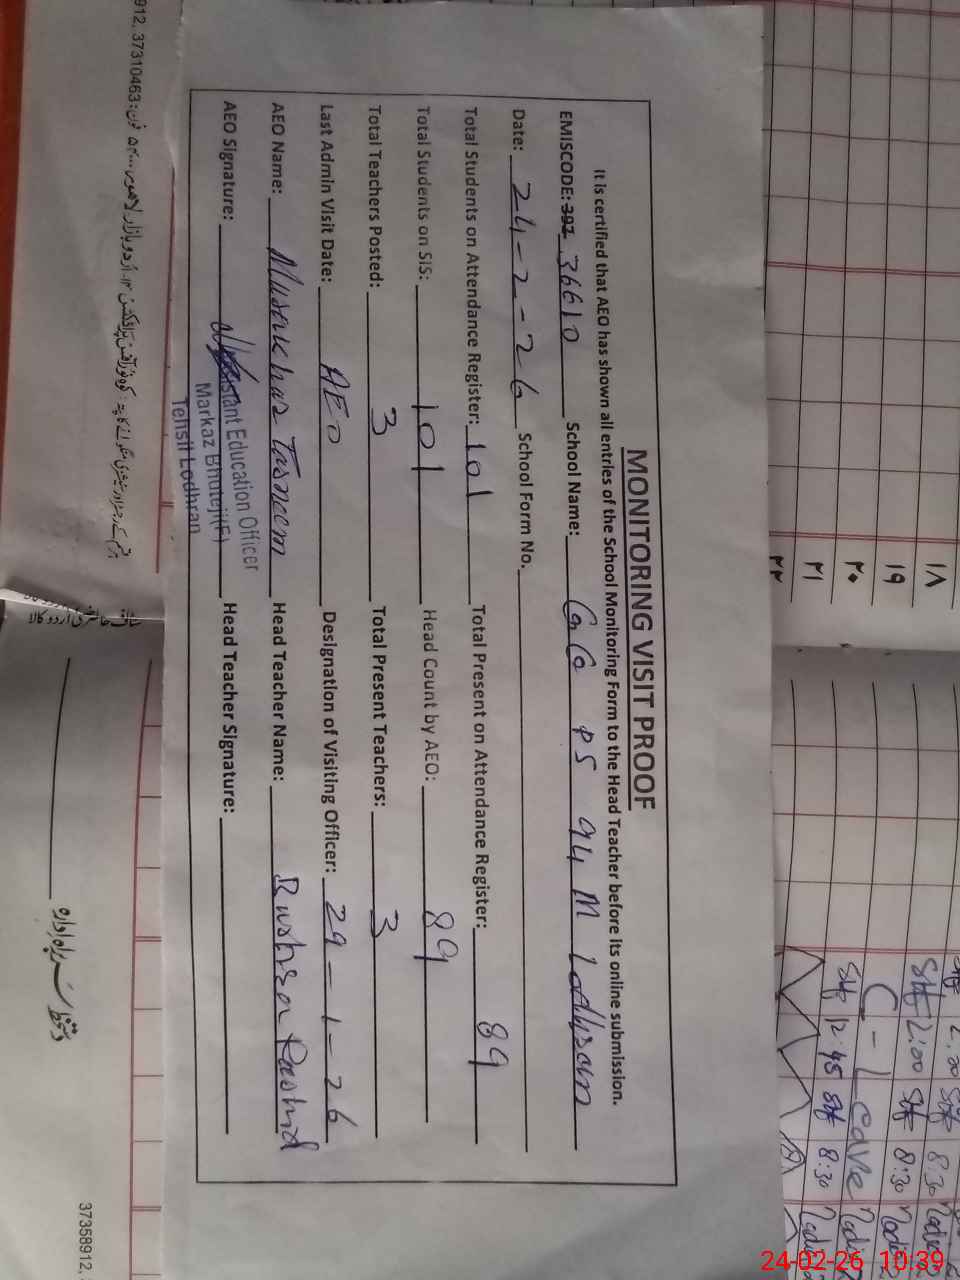 MONITORING VISIT PROOF
It is certified that AEO has shown all entries of the School Monitoring Form to the Head Teacher before its online submission.
EMISCODE: 392 36610 School Name: GG PS 94 M Lodhran
Date: 24-2-26 School Form No.
Total Students on Attendance Register: 101 Total Present on Attendance Register: 89
Total Students on SIS: 101 Head Count by AEO: 89
Total Teachers Posted: 3 Total Present Teachers: 3
Last Admin Visit Date: AEO Designation of Visiting Officer: 29-1-26
AEO Name: Tasneem Head Teacher Name: Rashid
AEO Signature: Head Teacher Signature:
Assistant Education Officer
Markaz Bhuteji(F)
Tehsil Lodhran
۱۸
۱۹
۲۰
۲۱
۲۲
2:00 8:30
C - Leave
12:45 8:30
912, 37310463
37358912,
دستخط سربراہ ادارہ
24-02-26 10:39